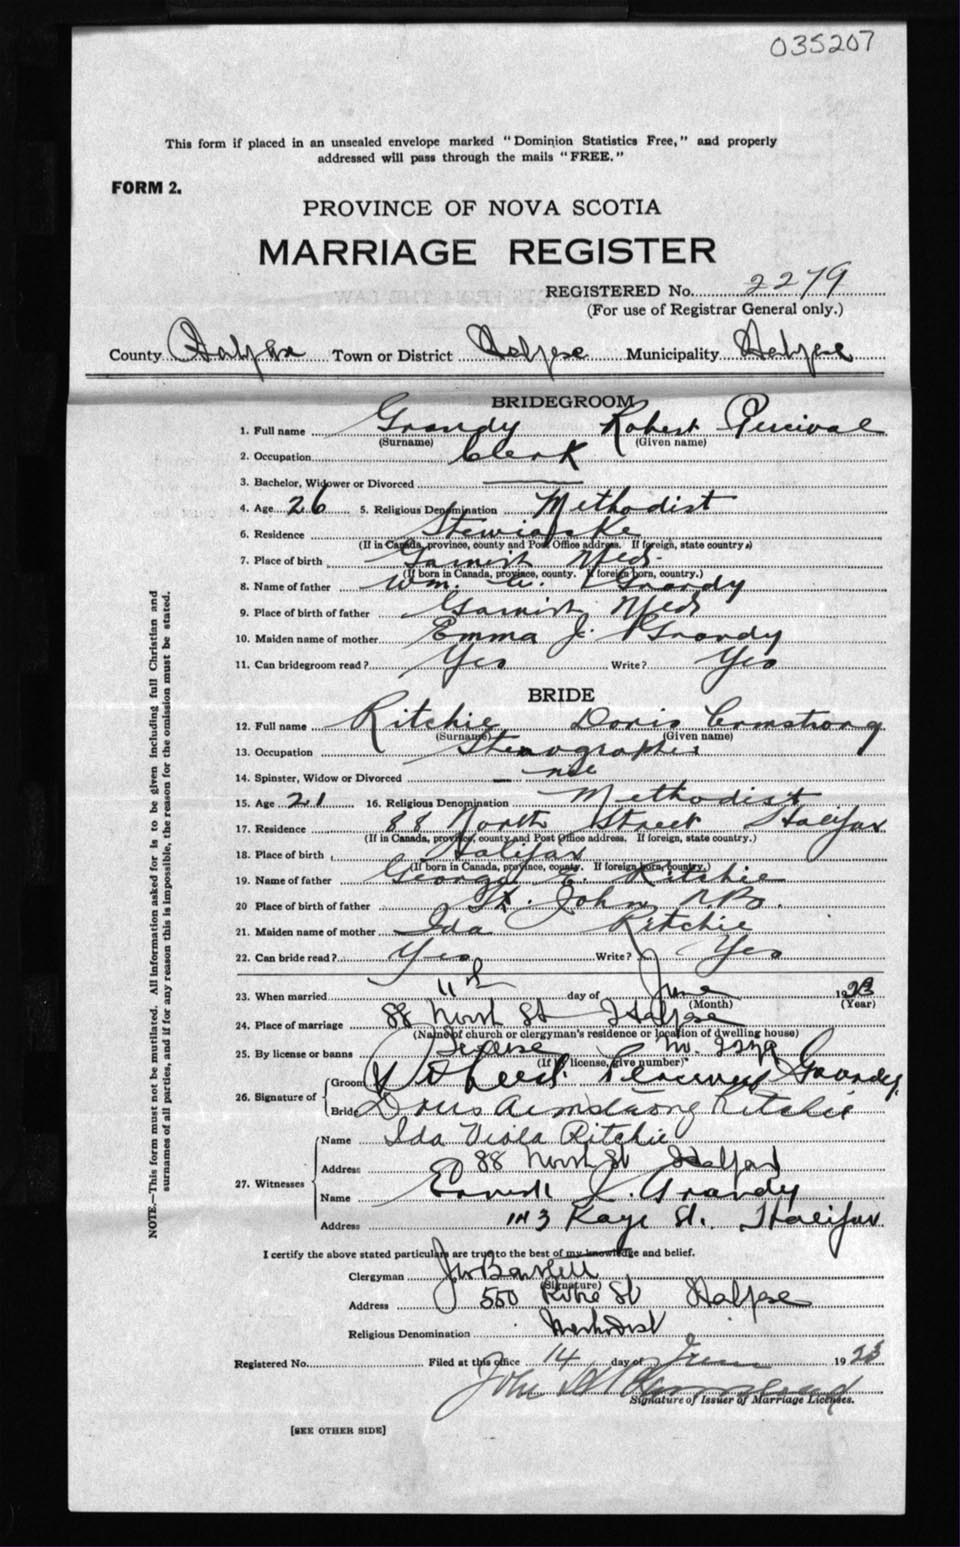 035207
This form if placed in an unsealed envelope marked "Dominion Statistics Free," and properly
addressed will pass through the mails "FREE."
FORM 2.
PROVINCE OF NOVA SCOTIA
MARRIAGE REGISTER
REGISTERED No. 2279
(For use of Registrar General only.)
County Halifax Town or District Halifax Municipality Halifax
BRIDEGROOM
1. Full name Grandy Robert Percival
(Surname) (Given name)
2. Occupation Clerk
3. Bachelor, Widower or Divorced
4. Age 26 5. Religious Denomination Methodist
6. Residence Stewiacke
(If in Canada, province, county and Post Office address. If foreign, state country.)
7. Place of birth Garnish Nfld.
(If born in Canada, province, county. If foreign born, country.)
8. Name of father Wm. A. Grandy
9. Place of birth of father Garnish Nfld
10. Maiden name of mother Emma J. Grandy
11. Can bridegroom read? Yes Write? Yes
BRIDE
12. Full name Ritchie Doris Armstrong
(Surname) (Given name)
13. Occupation Stenographer
14. Spinster, Widow or Divorced
15. Age 21 16. Religious Denomination Methodist
17. Residence 88 North Street Halifax
(If in Canada, province, county and Post Office address. If foreign, state country.)
18. Place of birth Halifax
(If born in Canada, province, county. If foreign born, country.)
19. Name of father George E. Ritchie
20 Place of birth of father St. John N.B.
21. Maiden name of mother Ida Ritchie
22. Can bride read? Yes Write? Yes
23. When married 11th day of June 1923
(Month) (Year)
24. Place of marriage 88 North St Halifax
(Name of church or clergyman's residence or location of dwelling house)
25. By license or banns License
(If by license, give number)
26. Signature of Groom Robert Percival Grandy
Bride Doris Armstrong Ritchie
27. Witnesses
Name Ida Viola Ritchie
Address 88 North St Halifax
Name Ernest J. Grandy
Address 143 Kaye St. Halifax
I certify the above stated particulars are true to the best of my knowledge and belief.
Clergyman
(Signature)
Address 550 St Halifax
Religious Denomination Methodist
Registered No. Filed at this office 14 day of June 1923
John
Signature of Issuer of Marriage Licenses.
[SEE OTHER SIDE]
NOTE.—This form must not be mutilated. All information asked for is to be given including full Christian and
surnames of all parties, and if for any reason this is impossible, the reason for the omission must be stated.